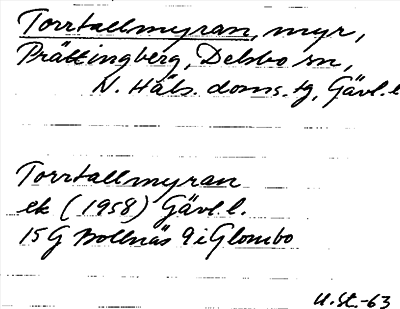 Torrtallmyran, myr,
Prästingberg, Delsbo sn,
N. Häls. doms. tg, Gävl. l
Torrtallmyran
ek (1958) Gävl. l.
15G Bollnäs 9i Glombo
U. St. -63